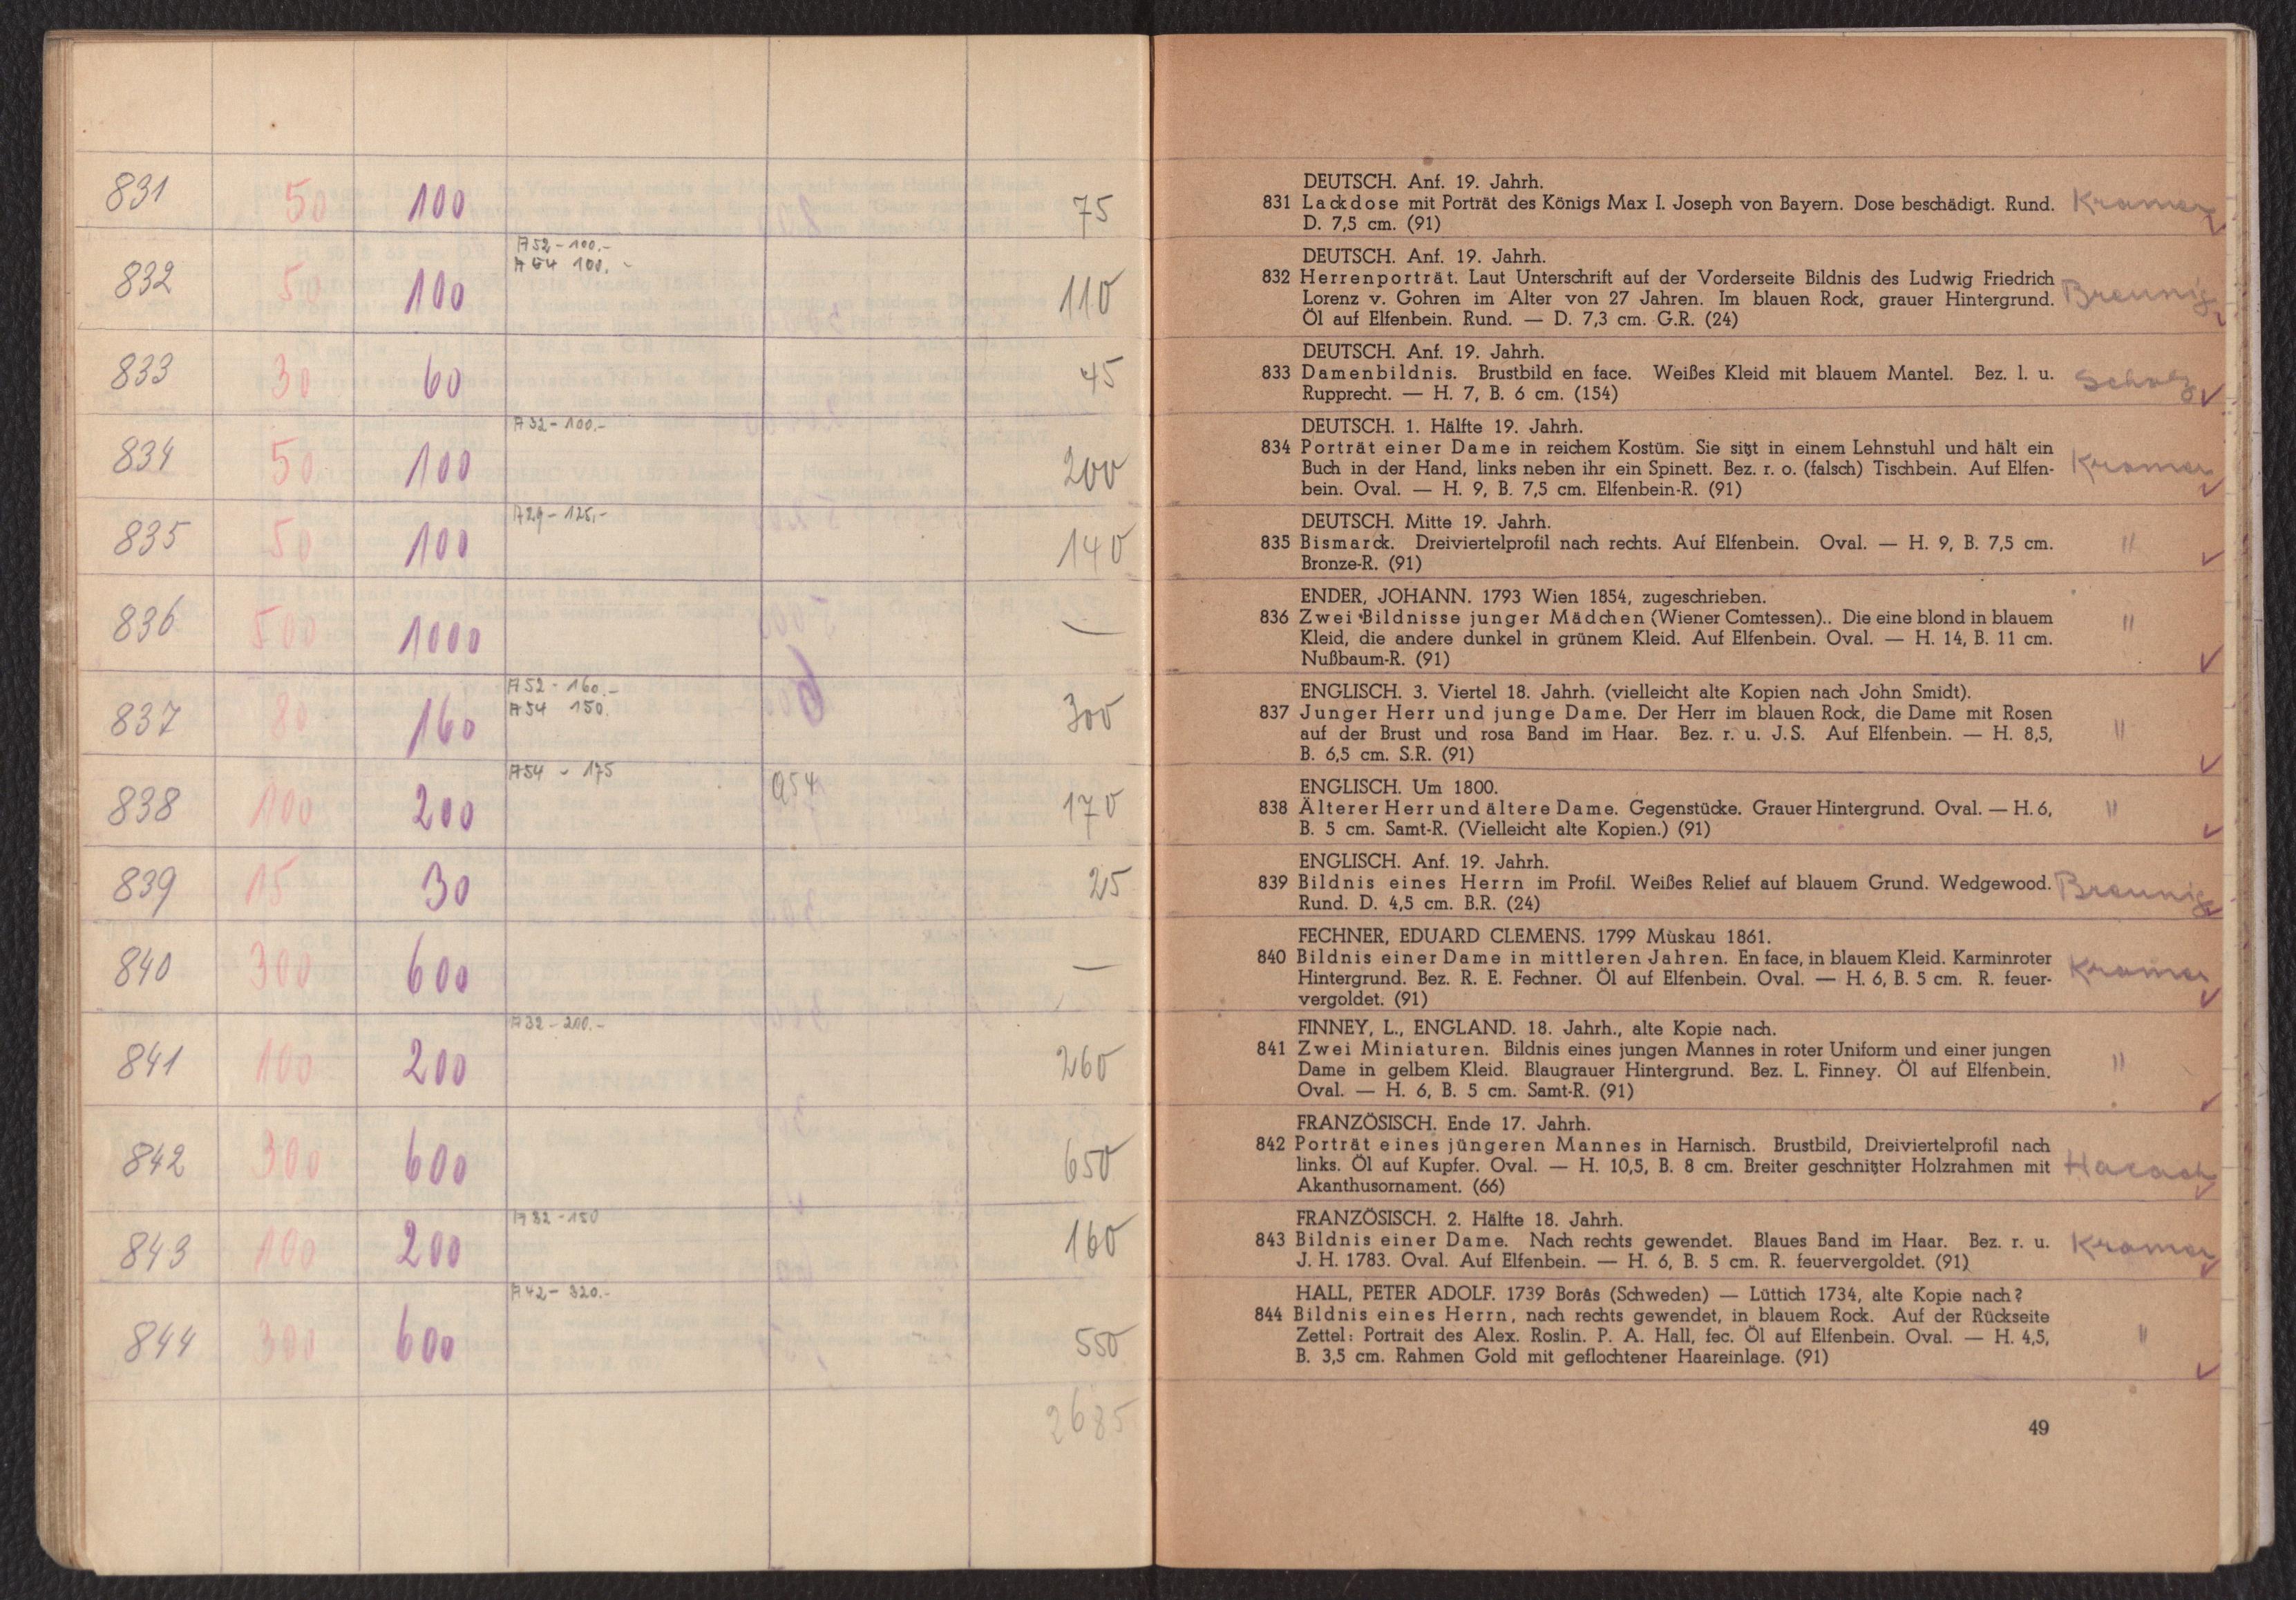 831 50 100 75
A52 - 100.-
832 50 100 110
833 30 60 45
A32 - 100.-
834 50 100 200
A29 - 125,-
835 50 100 140
836 500 1000 —
A52 - 160.-
A54 150.
837 80 160 300
A54 - 175 Q54
838 100 200 170
839 15 30 25
840 300 600 —
A32 - 200.-
841 100 200 260
842 300 600 650
A32 - 150
843 100 200 160
A42 - 320.-
844 300 600 550
2685
DEUTSCH. Anf. 19. Jahrh.
831 Lackdose mit Porträt des Königs Max I. Joseph von Bayern. Dose beschädigt. Rund. Kramer
D. 7,5 cm. (91)
DEUTSCH. Anf. 19. Jahrh.
832 Herrenporträt. Laut Unterschrift auf der Vorderseite Bildnis des Ludwig Friedrich
Lorenz v. Gohren im Alter von 27 Jahren. Im blauen Rock, grauer Hintergrund. Breunig
Öl auf Elfenbein. Rund. — D. 7,3 cm. G.R. (24)
DEUTSCH. Anf. 19. Jahrh.
833 Damenbildnis. Brustbild en face. Weißes Kleid mit blauem Mantel. Bez. l. u. Scholz
Rupprecht. — H. 7, B. 6 cm. (154)
DEUTSCH. 1. Hälfte 19. Jahrh.
834 Porträt einer Dame in reichem Kostüm. Sie sitzt in einem Lehnstuhl und hält ein
Buch in der Hand, links neben ihr ein Spinett. Bez. r. o. (falsch) Tischbein. Auf Elfen- Kramer
bein. Oval. — H. 9, B. 7,5 cm. Elfenbein-R. (91)
DEUTSCH. Mitte 19. Jahrh.
835 Bismarck. Dreiviertelprofil nach rechts. Auf Elfenbein. Oval. — H. 9, B. 7,5 cm. "
Bronze-R. (91)
ENDER, JOHANN. 1793 Wien 1854, zugeschrieben.
836 Zwei Bildnisse junger Mädchen (Wiener Comtessen).. Die eine blond in blauem "
Kleid, die andere dunkel in grünem Kleid. Auf Elfenbein. Oval. — H. 14, B. 11 cm.
Nußbaum-R. (91)
ENGLISCH. 3. Viertel 18. Jahrh. (vielleicht alte Kopien nach John Smidt).
837 Junger Herr und junge Dame. Der Herr im blauen Rock, die Dame mit Rosen
auf der Brust und rosa Band im Haar. Bez. r. u. J.S. Auf Elfenbein. — H. 8,5, "
B. 6,5 cm. S.R. (91)
ENGLISCH. Um 1800.
838 Älterer Herr und ältere Dame. Gegenstücke. Grauer Hintergrund. Oval. — H. 6, "
B. 5 cm. Samt-R. (Vielleicht alte Kopien.) (91)
ENGLISCH. Anf. 19. Jahrh.
839 Bildnis eines Herrn im Profil. Weißes Relief auf blauem Grund. Wedgewood. Breunig
Rund. D. 4,5 cm. B.R. (24)
FECHNER, EDUARD CLEMENS. 1799 Muskau 1861.
840 Bildnis einer Dame in mittleren Jahren. En face, in blauem Kleid. Karminroter Kramer
Hintergrund. Bez. R. E. Fechner. Öl auf Elfenbein. Oval. — H. 6, B. 5 cm. R. feuer-
vergoldet. (91)
FINNEY, L., ENGLAND. 18. Jahrh., alte Kopie nach.
841 Zwei Miniaturen. Bildnis eines jungen Mannes in roter Uniform und einer jungen "
Dame in gelbem Kleid. Blaugrauer Hintergrund. Bez. L. Finney. Öl auf Elfenbein.
Oval. — H. 6, B. 5 cm. Samt-R. (91)
FRANZÖSISCH. Ende 17. Jahrh.
842 Porträt eines jüngeren Mannes in Harnisch. Brustbild, Dreiviertelprofil nach
links. Öl auf Kupfer. Oval. — H. 10,5, B. 8 cm. Breiter geschnitzter Holzrahmen mit
Akanthusornament. (66)
FRANZÖSISCH. 2. Hälfte 18. Jahrh.
843 Bildnis einer Dame. Nach rechts gewendet. Blaues Band im Haar. Bez. r. u. Kramer
J. H. 1783. Oval. Auf Elfenbein. — H. 6, B. 5 cm. R. feuervergoldet. (91)
HALL, PETER ADOLF. 1739 Borås (Schweden) — Lüttich 1734, alte Kopie nach?
844 Bildnis eines Herrn, nach rechts gewendet, in blauem Rock. Auf der Rückseite
Zettel: Portrait des Alex. Roslin. P. A. Hall, fec. Öl auf Elfenbein. Oval. — H. 4,5, "
B. 3,5 cm. Rahmen Gold mit geflochtener Haareinlage. (91)
49